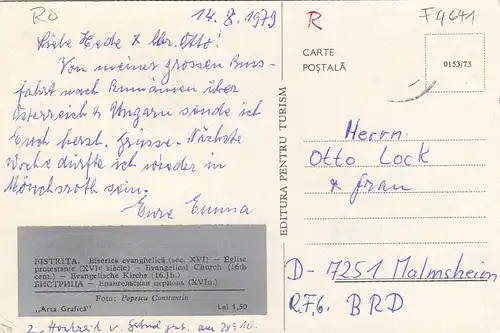 RO
14.8.1979
R
F4641
Liebe Hede & Hr. Otto!
Von meiner grossen Bus-
fahrt nach Rumänien über
Österreich & Ungarn sende ich
Euch herzl. Grüsse. Nächste
Woche dürfte ich wieder in
Mönchsroth sein.
Eure Emma
BISTRIȚA. Biserica evanghelică (sec. XVI) - Église
protestante (XVIe siècle) - Evangelical Church (16th
cent.) - Evangelische Kirche (16.Jh.)
БИСТРИЦА - Евангельская церковь (XVIв.)
Foto: Popescu Constantin
„Arta Grafică" Lei 1,50
z. Hochzeit v. am 20.10.
EDITURA PENTRU TURISM
CARTE
POȘTALĂ
0153/73
Herrn
Otto Lock
& Frau
D-7251 Malmsheim
BRD